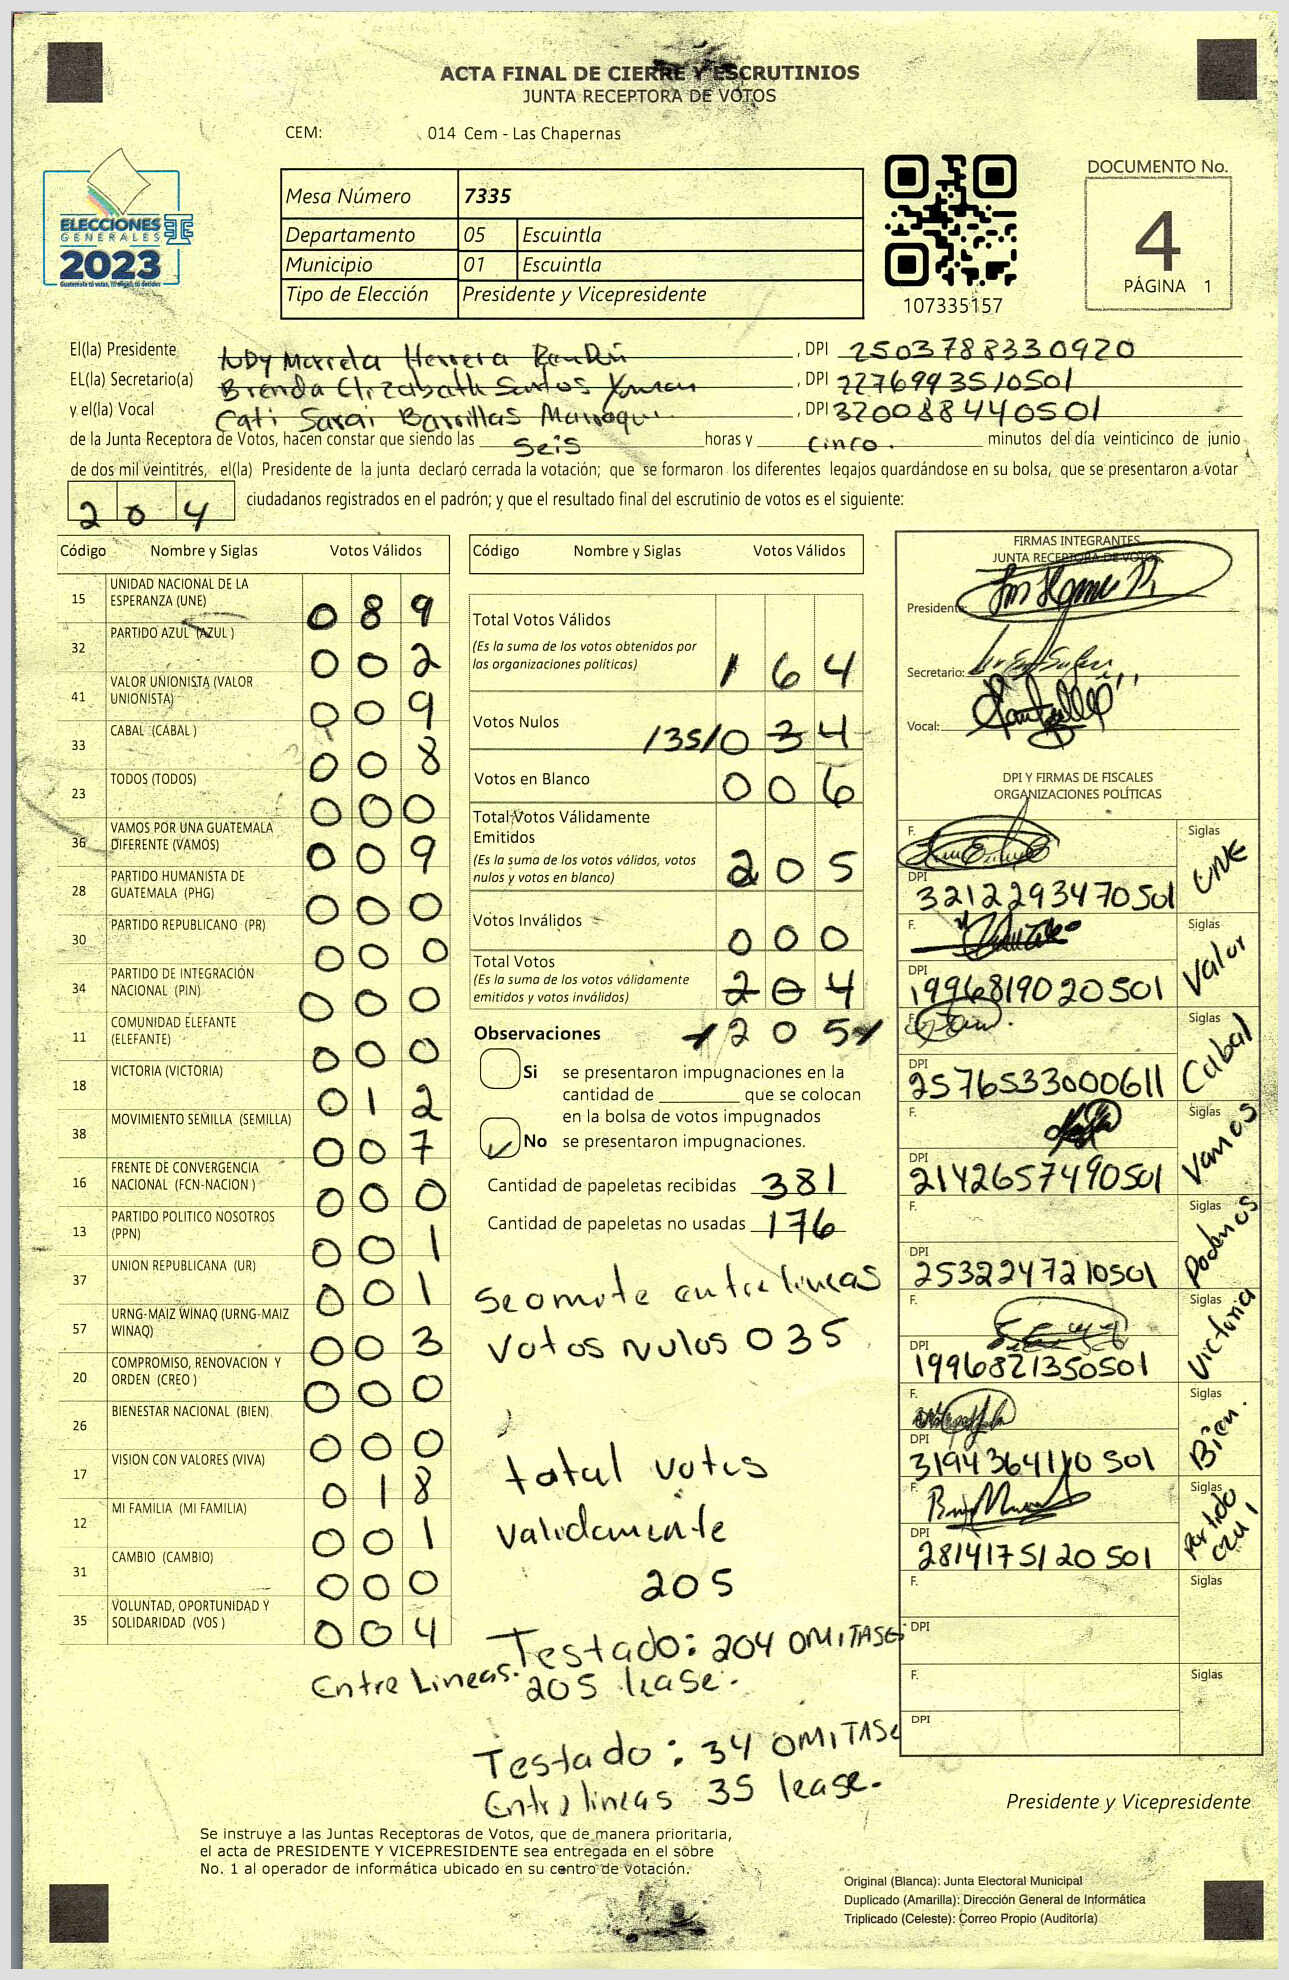 ACTA FINAL DE CIERRE Y ESCRUTINIOS
JUNTA RECEPTORA DE VOTOS
CEM: 014 Cem - Las Chapernas
ELECCIONES
GENERALES
2023
Guatemala tú votas, tú eliges, tú decides
Mesa Número 7335
Departamento 05 Escuintla
Municipio 01 Escuintla
Tipo de Elección Presidente y Vicepresidente
107335157
DOCUMENTO No.
4
PÁGINA 1
El(la) Presidente Marcela Herrera , DPI 2503788330920
EL(la) Secretario(a) Brenda Elizabath Santos , DPI 2276993510501
y el(la) Vocal Cati Sarai Barrillas , DPI 320088440501
de la Junta Receptora de Votos, hacen constar que siendo las seis horas y cinco. minutos del día veinticinco de junio
de dos mil veintitrés, el(la) Presidente de la junta declaró cerrada la votación; que se formaron los diferentes legajos guardándose en su bolsa, que se presentaron a votar
204 ciudadanos registrados en el padrón; y que el resultado final del escrutinio de votos es el siguiente:
Código Nombre y Siglas Votos Válidos
15 UNIDAD NACIONAL DE LA ESPERANZA (UNE) 089
32 PARTIDO AZUL (AZUL ) 002
41 VALOR UNIONISTA (VALOR UNIONISTA) 009
33 CABAL (CABAL ) 008
23 TODOS (TODOS) 000
36 VAMOS POR UNA GUATEMALA DIFERENTE (VAMOS) 009
28 PARTIDO HUMANISTA DE GUATEMALA (PHG) 000
30 PARTIDO REPUBLICANO (PR) 000
34 PARTIDO DE INTEGRACIÓN NACIONAL (PIN) 000
11 COMUNIDAD ELEFANTE (ELEFANTE) 000
18 VICTORIA (VICTORIA) 012
38 MOVIMIENTO SEMILLA (SEMILLA) 007
16 FRENTE DE CONVERGENCIA NACIONAL (FCN-NACION ) 000
13 PARTIDO POLITICO NOSOTROS (PPN) 001
37 UNION REPUBLICANA (UR) 001
57 URNG-MAIZ WINAQ (URNG-MAIZ WINAQ) 003
20 COMPROMISO, RENOVACION Y ORDEN (CREO ) 000
26 BIENESTAR NACIONAL (BIEN) 000
17 VISION CON VALORES (VIVA) 018
12 MI FAMILIA (MI FAMILIA) 001
31 CAMBIO (CAMBIO) 000
35 VOLUNTAD, OPORTUNIDAD Y SOLIDARIDAD (VOS ) 004
Código Nombre y Siglas Votos Válidos
Total Votos Válidos 164
(Es la suma de los votos obtenidos por
las organizaciones políticas)
Votos Nulos /35/ 034
Votos en Blanco 006
Total Votos Válidamente
Emitidos
(Es la suma de los votos válidos, votos
nulos y votos en blanco) 205
Votos Inválidos 000
Total Votos
(Es la suma de los votos válidamente
emitidos y votos inválidos) 204
Observaciones 205
Si se presentaron impugnaciones en la
cantidad de ________ que se colocan
en la bolsa de votos impugnados
No se presentaron impugnaciones.
Cantidad de papeletas recibidas 381
Cantidad de papeletas no usadas 176
Se omite entre lineas
Votos Nulos 035
total votos
validamente
205
Testado: 204 OMITASE
Entre Lineas. 205 lease.
Testado: 34 OMITASE
Entre lineas 35 lease.
FIRMAS INTEGRANTES
JUNTA RECEPTORA DE VOTOS
Presidente:
Secretario:
Vocal:
DPI Y FIRMAS DE FISCALES
ORGANIZACIONES POLÍTICAS
F. Siglas UNE
DPI 3212293470501
F. Siglas Valor
DPI 1996819020501
F. Siglas Cabal
DPI 2576533000611
F. Siglas Vamos
DPI 2142657490501
F. Siglas Podemos
DPI 2532247210501
F. Siglas Victoria
DPI 1996821350501
F. Siglas Bien.
DPI 3194364110501
F. Siglas Partido azul
DPI 2814175120501
F. Siglas
DPI
F. Siglas
DPI
Presidente y Vicepresidente
Se instruye a las Juntas Receptoras de Votos, que de manera prioritaria,
el acta de PRESIDENTE Y VICEPRESIDENTE sea entregada en el sobre
No. 1 al operador de informática ubicado en su centro de votación.
Original (Blanca): Junta Electoral Municipal
Duplicado (Amarilla): Dirección General de Informática
Triplicado (Celeste): Correo Propio (Auditoría)